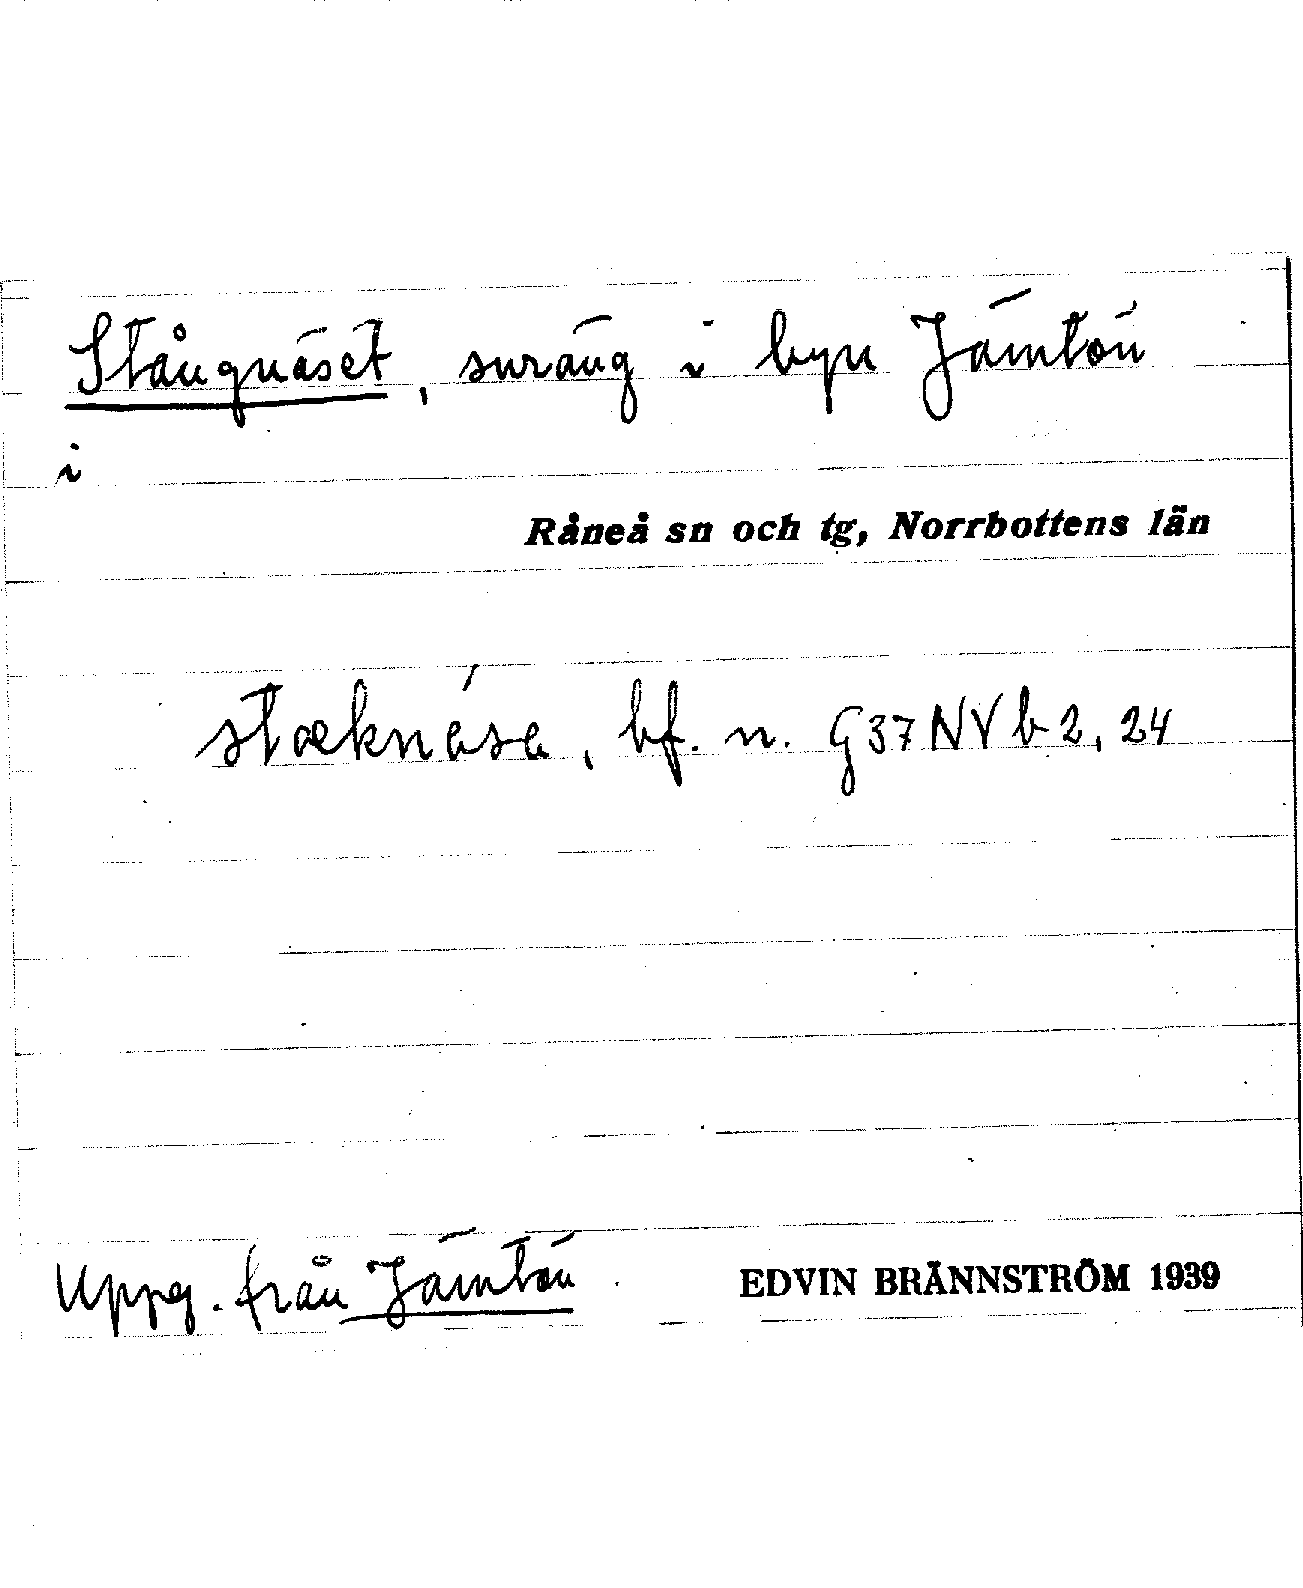 Stångnäset, suräng i byn Jämtön
i
Råneå sn och tg, Norrbottens län
stæknésa, bf. n. G37NVb2, 24
Uppg. från Jämtön
EDVIN BRÄNNSTRÖM 1939